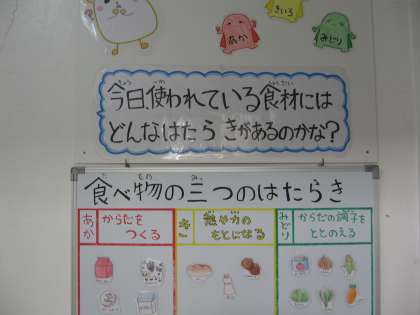 きいろ
あか
みどり
今日、使われている食材には
どんなはたらきがあるのかな?
食べ物の三つのはたらき
あか
からだを
つくる
き
熱や力の
もとになる
みどり
からだの調子を
ととのえる